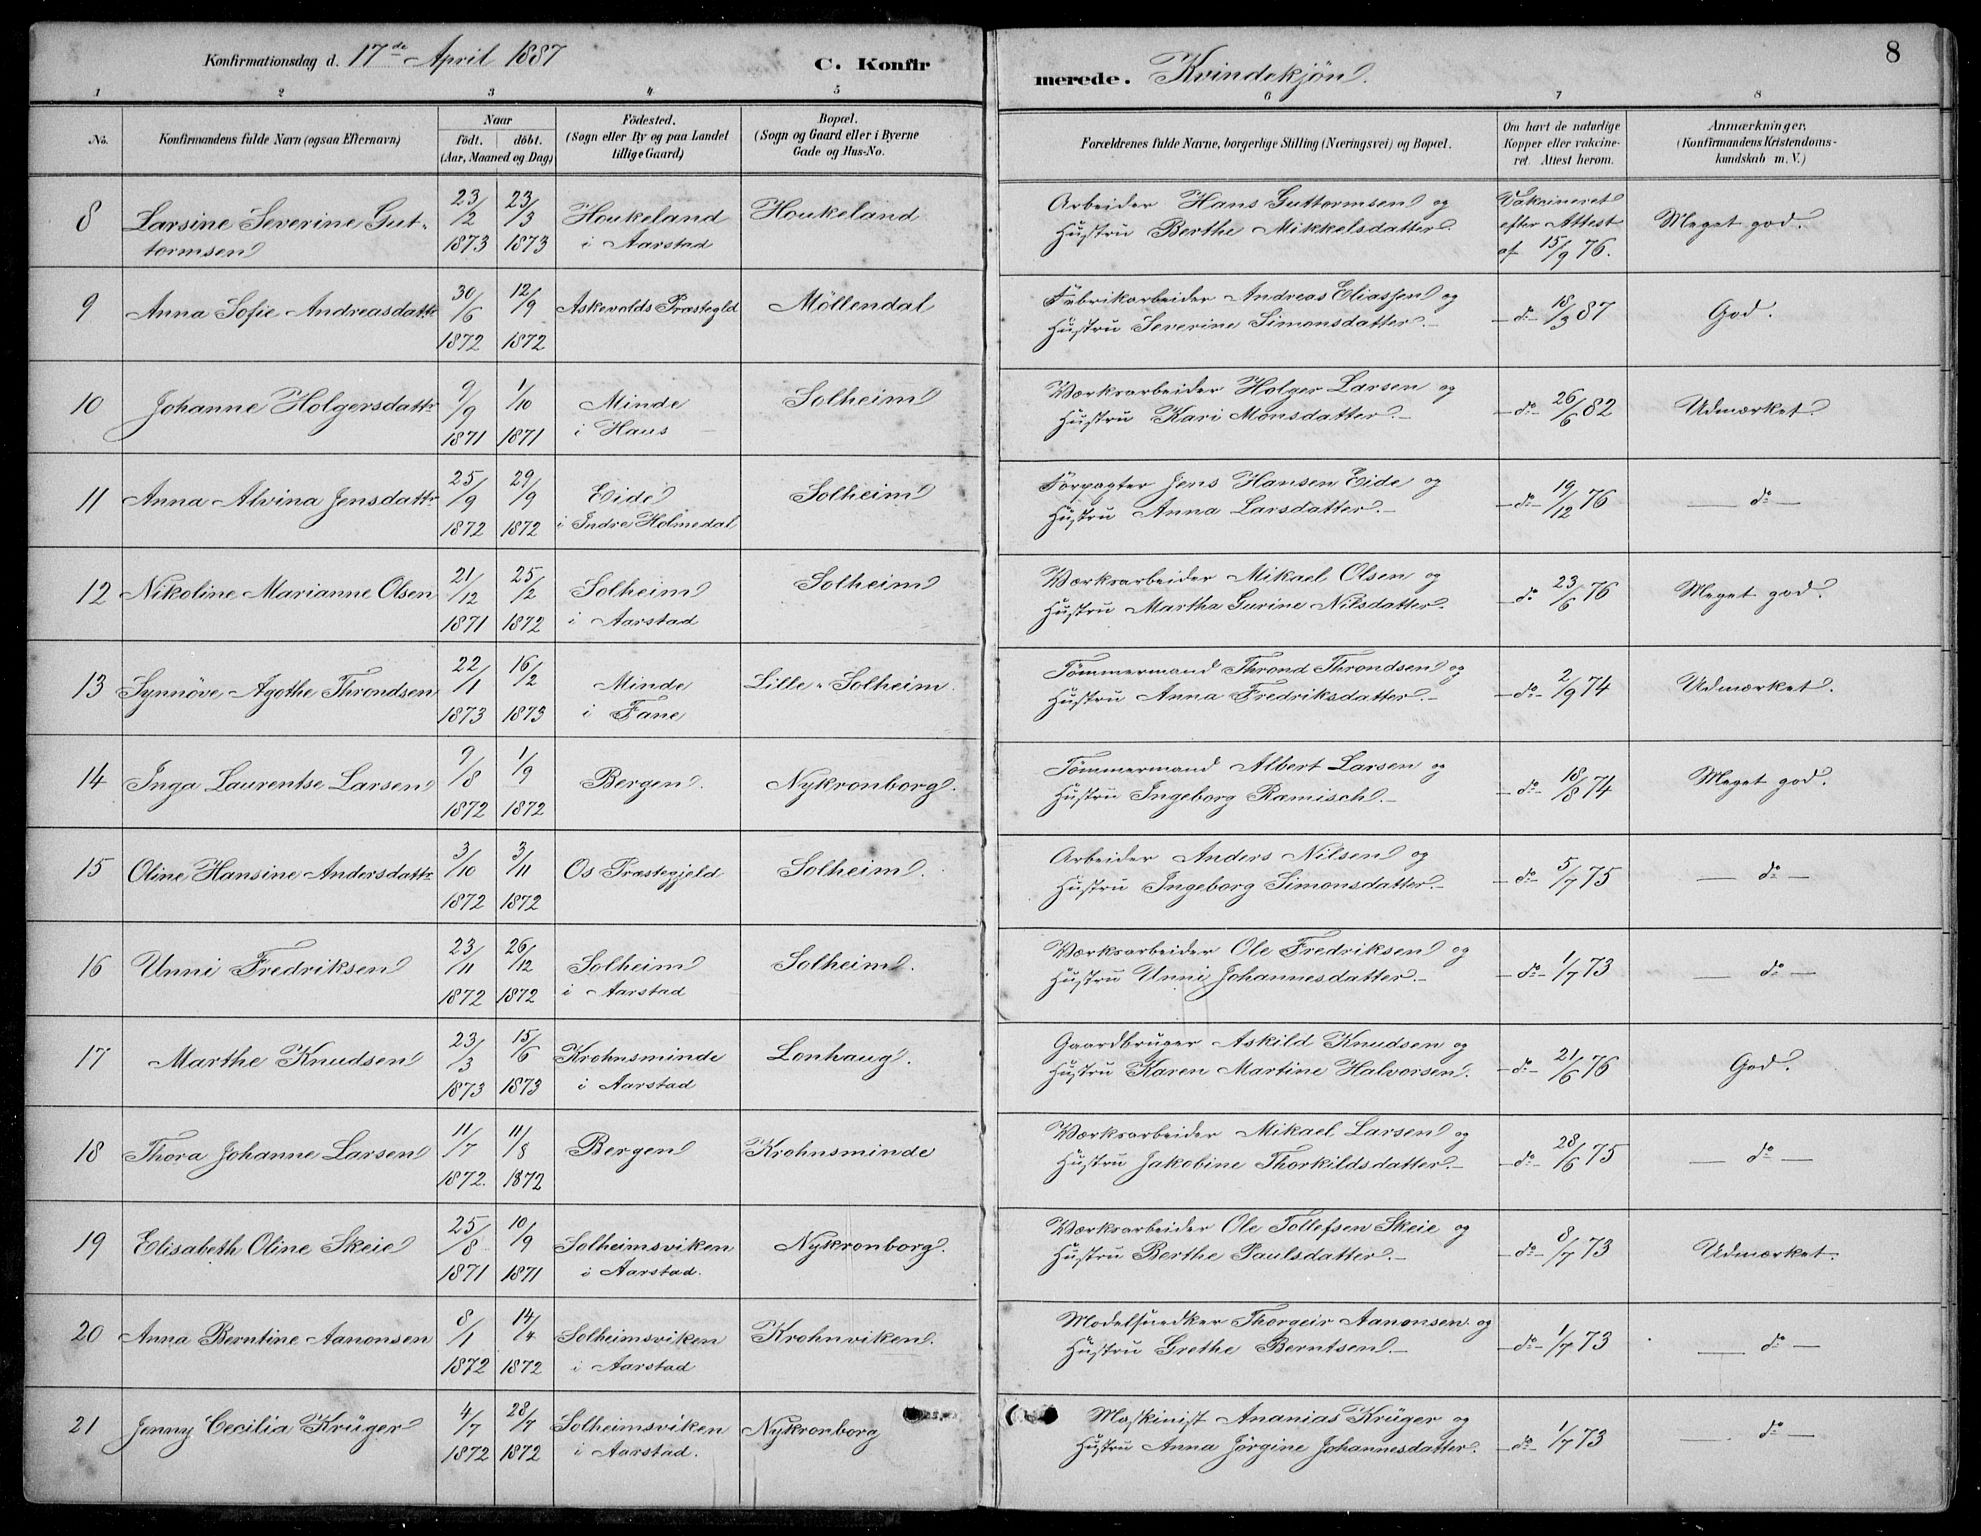 Konfirmationsdag d. 17de April 1887
C. Konfir
merede. Kvindekjøn.
8
1 2 3 4 5 6 7 8
No. Konfirmandens fulde Navn (ogsaa Efternavn) Naar født. døbt. (Aar, Maaned og Dag) Födested. (Sogn eller By og paa Landet tillige Gaard) Bopæl. (Sogn og Gaard eller i Byerne Gade og Hus-No. Forældrenes fulde Navne, borgerlige Stilling (Næringsvei) og Bopæl. Om havt de naturlige Kopper eller vakcineret. Attest herom. Anmærkninger. (Konfirmandens Kristendomskundskab m. V.)
8 Larsine Severine Guttormsen 23/2 1873 23/3 1873 Houkeland i Aarstad Houkeland Arbeider Hans Guttormsen og Hustru Berthe Mikkelsdatter Vakcineret efter Attest af 15/9 76. Meget god.
9 Anna Sofie Andreasdattr 30/6 1872 12/9 1872 Askevolds Præstegld Möllendal Fabrikarbeider Andreas Eliassen og Hustru Severine Simonsdatter.- -do- 18/3 87 God.
10 Johanne Holgersdattr 9/9 1871 1/10 1871 Minde i Haus Solheim Værksarbeider Holger Larsen og Hustru Kari Monsdatter.- -do- 26/6 82 Udmærket.
11 Anna Alvina Jensdattr 25/9 1872 29/9 1872 Eide i Indre Holmedal Solheim Forpagter Jens Hansen Eide og Hustru Anna Larsdatter.- -do- 19/12 76 - do -
12 Nikoline Marianne Olsen 21/12 1871 25/2 1872 Solheim i Aarstad Solheim Værksarbeider Mikael Olsen og Hustru Martha Gurine Nilsdatter. -do- 23/6 76 Meget god.
13 Synnöve Agathe Throndsen 22/1 1873 16/2 1873 Minde i Fane Lille-Solheim. Tömmermand Thrond Throndsen og Hustru Anna Fredriksdatter.- -do- 2/9 74 Udmærket.
14 Inga Laurentse Larsen 9/8 1872 1/9 1872 Bergen. Nykronborg. Tömmermand Albert Larsen og Hustru Ingeborg Ramisch.- -do- 18/8 74 Meget god.
15 Oline Hansine Andersdattr 3/10 1872 3/11 1872 Os Præstegjeld Solheim. Arbeider Anders Nilsen og Hustru Ingeborg Simonsdatter.- -do- 5/7 75 - do -
16 Unni Fredriksen 23/11 1872 26/12 1872 Solheim i Aarstad Solheim. Værksarbeider Ole Fredriksen og Hustru Unni Johannesdatter.- -do- 1/7 73 - do -
17 Marthe Knudsen 23/3 1873 15/6 1873 Krohnsminde i Aarstad Lonhaug. Gaardbruger Askild Knudsen og Hustru Karen Martine Halvorsen. -do- 21/6 76 God.
18 Thora Johanne Larsen 11/7 1872. 11/8 1872 Bergen Krohnsminde Værksarbeider Mikael Larsen og Hustru Jakobine Thorkildsdatter.- -do- 28/6 75 - do -
19 Elisabeth Oline Skeie 25/8 1871 10/9 1871 Solheimsviken i Aarstad. Nykronborg. Værksarbeider Ole Tollefsen Skeie og Hustru Berthe Paulsdatter.- -do- 8/7 73 Udmærket.
20 Anna Berntine Aanonsen 8/1 1872 14/4 1872 Solheimsviken i Aarstad Krohnviken. Modelsnedker Thorgeir Aanonsen og Hustru Grethe Berntsen.- -do- 1/7 73 - do -
21 Jenny Cecilia Krüger 4/7 1872 28/7 1872 Solheimsviken i Aarstad. Nykronborg Maskinist Ananias Krüger og Hustru Anna Jörgine Johannesdatter. -do- 1/7 73 - do -